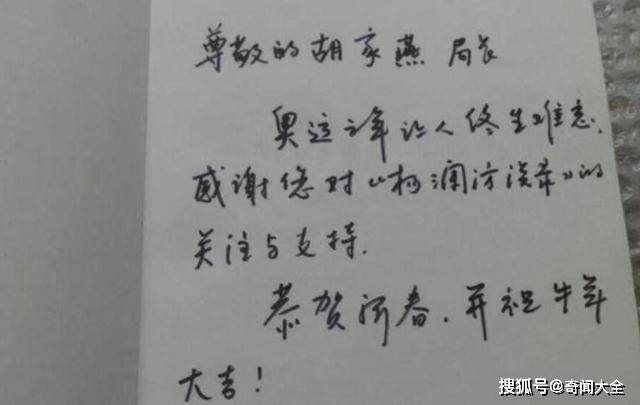 尊敬的胡家燕局长
奥运之年让人终生难忘.
感谢您对《杨澜访谈录》的
关注与支持.
恭贺新春.并祝牛年
大吉!
搜狐号@奇闻大全